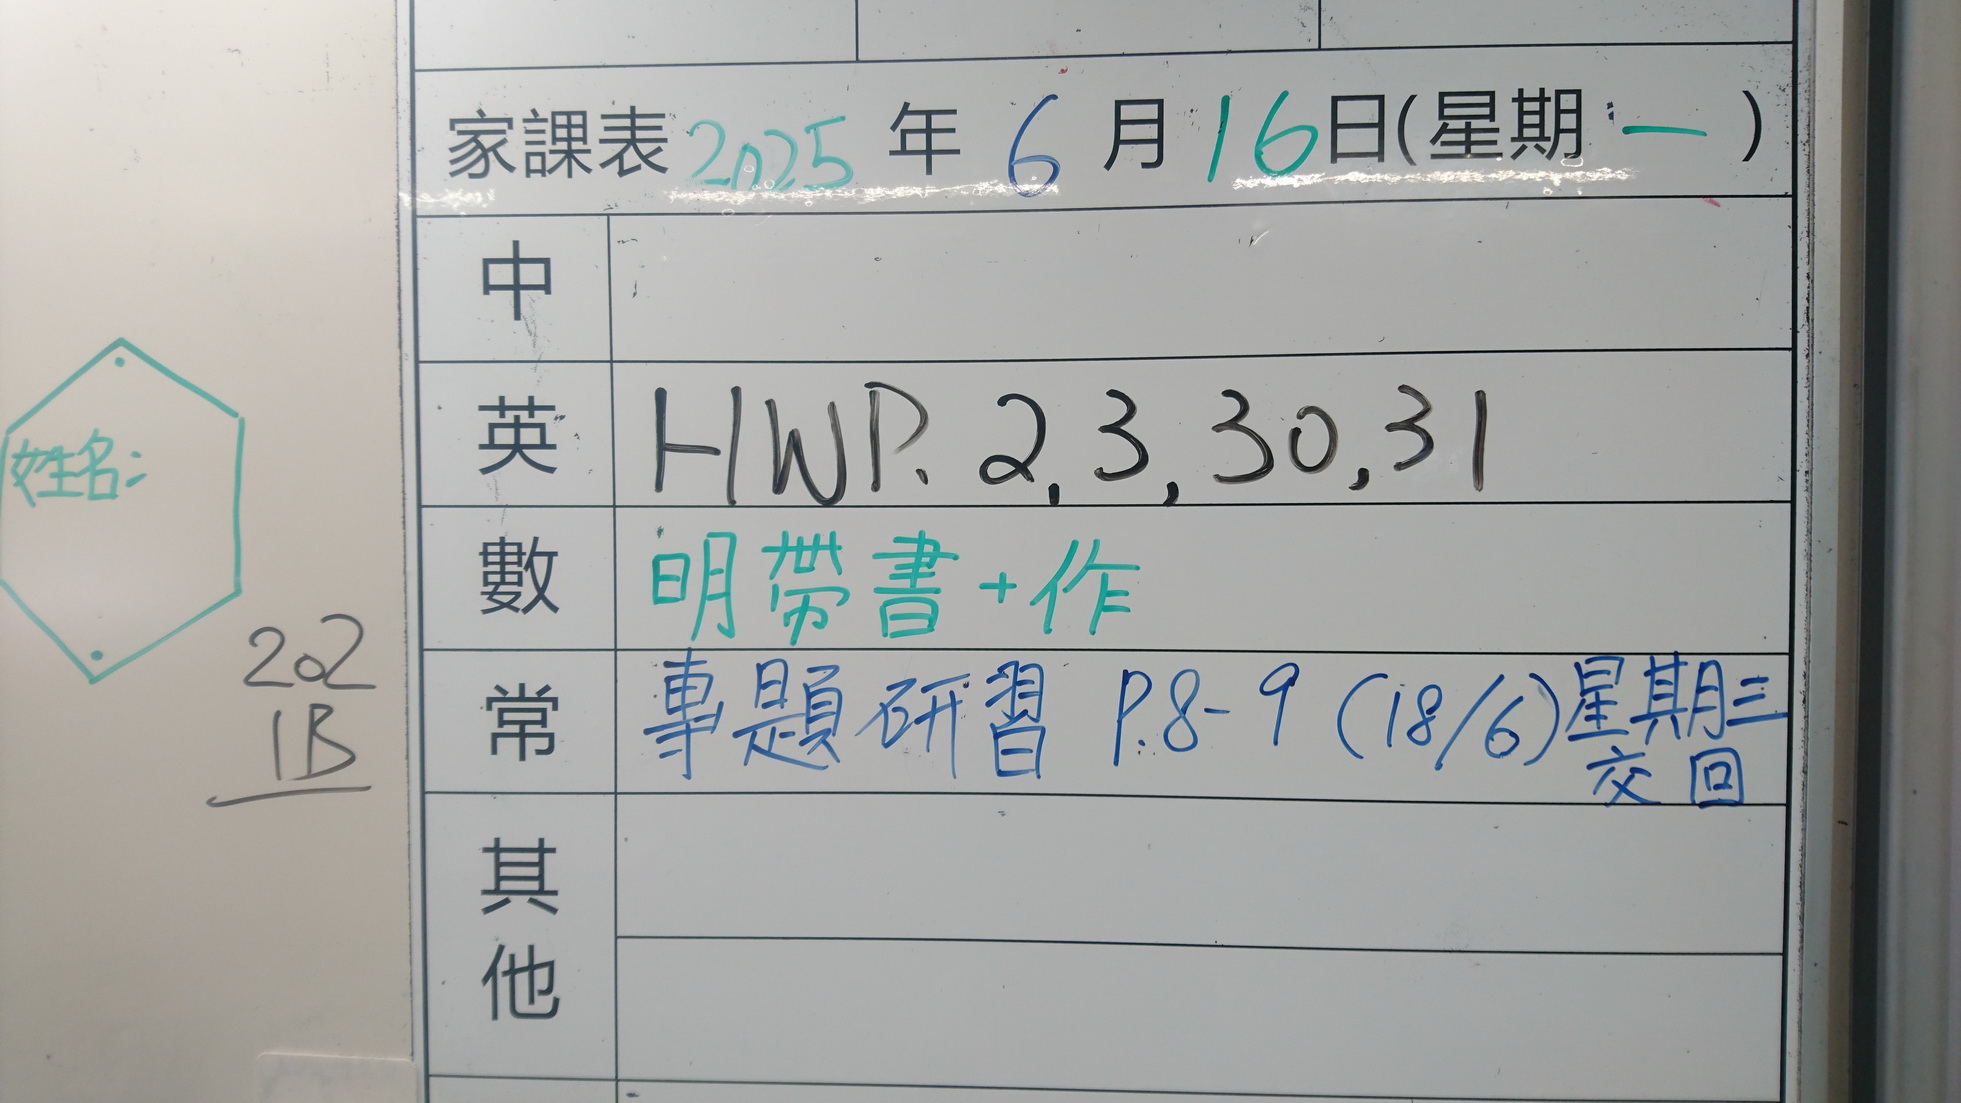 家課表2025年6月16日(星期一)
中
英 HWP. 2,3,30,31
數 明帶書+作
常 專題研習 P.8-9 (18/6)星期三
交回
其
他
姓名:
202
1B